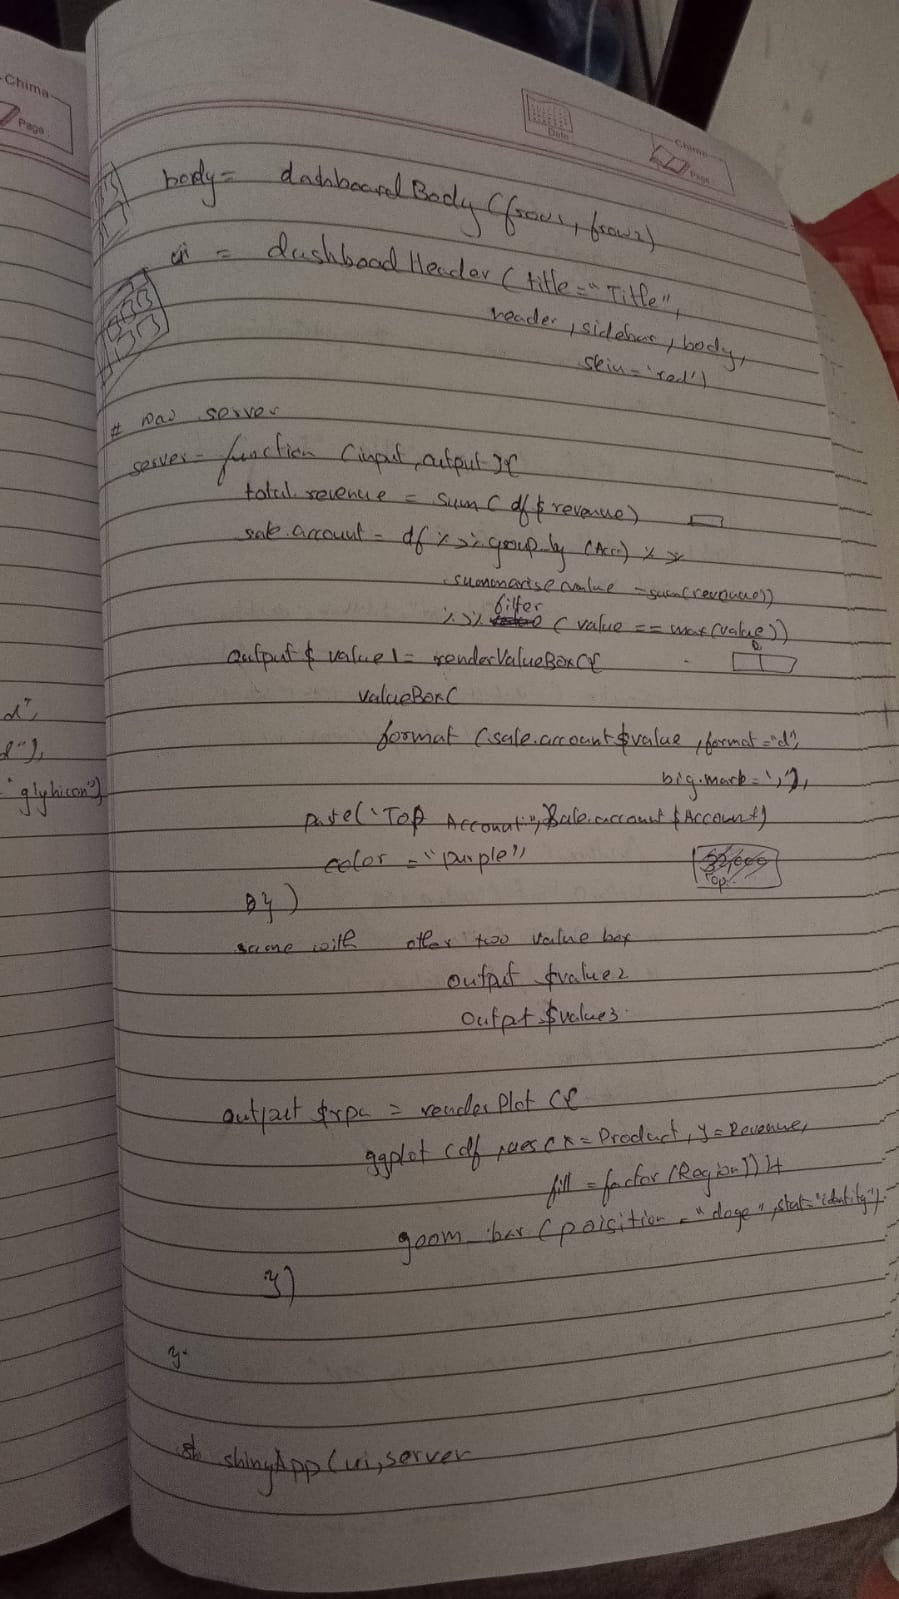 Chima
Page
Date
Chima
Page
body = dashboardBody (frow1, frow2)
ui = dashboad Header ( title = "Title",
header, sidebar, body,
skin = 'red')
# server
server = function (input, output) {
total. revenue = sum ( df $ revenue)
sale.account = df %>% group_by (Acc) %>
summarise value = sum(revenue))
filter
%>% ( value == max (value))
output $ value1 = renderValueBox({
valueBox(
format ( sale.account $value , format = "d",
big.mark = ','),
paste('Top Account:", sale.account $ Account)
color = "purple")
})
same with other two value box
output $value2
Outpt $value3
output $rpc = render Plot ({
ggplot (df, aes ( x = Product, y = Revenue,
fill = factor (Region)) +
geom_bar ( poisition = "doge", stat = "identity")
})
}
shinyApp ( ui, server
d",
"glyhicon")